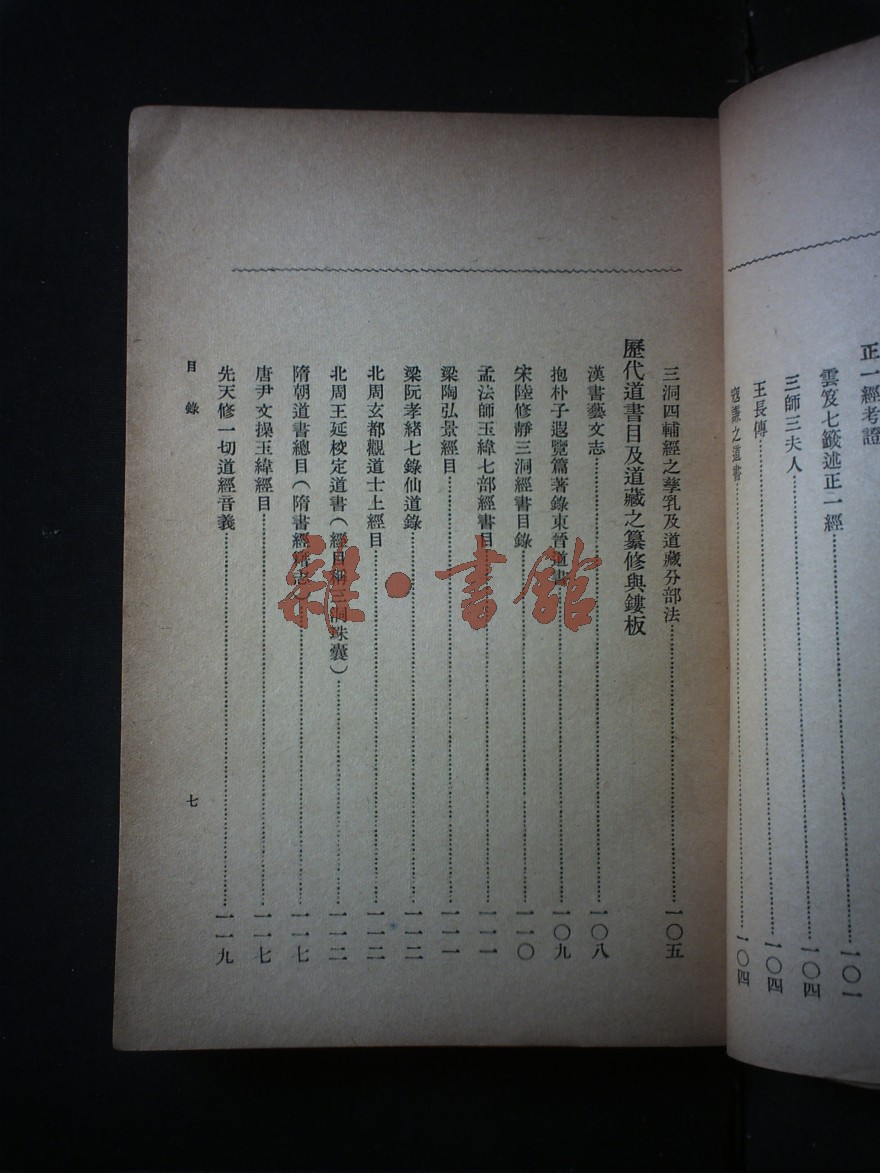 正一經考證
雲笈七籤述正一經……一〇一
三師三夫人……一〇四
王長傳……一〇四
寇謙之道書……一〇四
三洞四輔經之孳乳及道藏分部法……一〇五
歷代道書目及道藏之纂修與鏤板
漢書藝文志……一〇八
抱朴子遐覽篇著錄東晉道書……一〇九
宋陸修靜三洞經書目錄……一一〇
孟法師玉緯七部經書目……一一一
梁陶弘景經目……一一一
梁阮孝緒七錄仙道錄……一一二
北周玄都觀道士上經目……一一二
北周王延校定道書(經目稱三洞珠囊)……一一二
隋朝道書總目(隋書經籍志)……一一七
唐尹文操玉緯經目……一一七
先天修一切道經音義……一一九
目錄
七
雜·書館